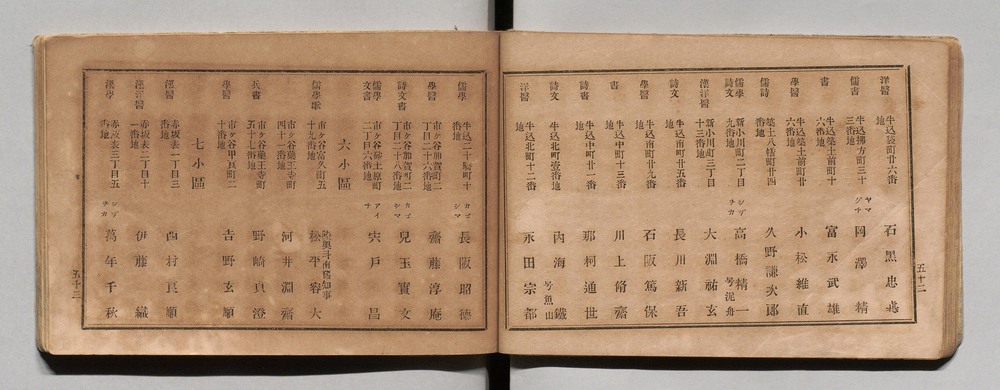 洋醫 牛込箪町廿六番地 石黒忠悳
儒書 牛込拂方町三十三番地 ヤマグチ 岡澤精
書 牛込築土前町十六番地 富永武雄
學醫 牛込築土前町廿六番地 小松維直
儒詩 築土八幡町廿四番地 久野謙次郎
儒學詩文 新小川町二丁目九番地 シヅヲカ 高橋精一 号泥舟
漢洋醫 新小川町三丁目十三番地 大淵祐玄
詩文 牛込中町廿五番地 長川新吾
學醫 牛込中町廿九番地 石阪篤保
書 牛込中町十三番地 川上脩齋
書 牛込中町廿一番地 那柯通世
詩文 牛込北町壹番地 内海鐵 号魚山
洋醫 牛込北町十二番地 永田宗都
五十二
儒學 牛込二十騎町十番地 カゴシマ 長阪昭德
學醫 市ヶ谷加賀町二丁目二十六番地 齋藤淳庵
詩文書 市ヶ谷加賀町二丁目二十八番地 カゴシマ 兒玉寶文
儒學文書 市ヶ谷砂土原町二丁目六番地 アイチ 宍戸昌
六小區
儒學歌 市ヶ谷富久町五十九番地 陸奥斗南舊知事 松平容大
市ヶ谷藥王寺町四十一番地 河井淵齋
兵書 市ヶ谷藥王寺町五十七番地 野崎眞澄
學醫 市ヶ谷甲良町二十番地 吉野玄順
七小區
漢醫 赤坂表一丁目三番地 西村良順
漢洋醫 赤坂表二丁目十一番地 伊藤織
漢學 赤坂表三丁目五番地 シヅヲカ 萬年千秋
五十三